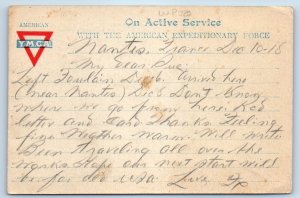 AMERICAN
Y.M.C.A.
On Active Service
WITH THE AMERICAN EXPEDITIONARY FORCE
Nantes, France Dec 10-18
My Dear Sue:
Left Dec 6. Arrived here
(near Nantes) Dec 8 Don't know
where we go from here. Rec
letter and Card Thanks Feeling
fine Weather warm. Will write
Been traveling all over the
works Hope our next start will
be for old USA. Love